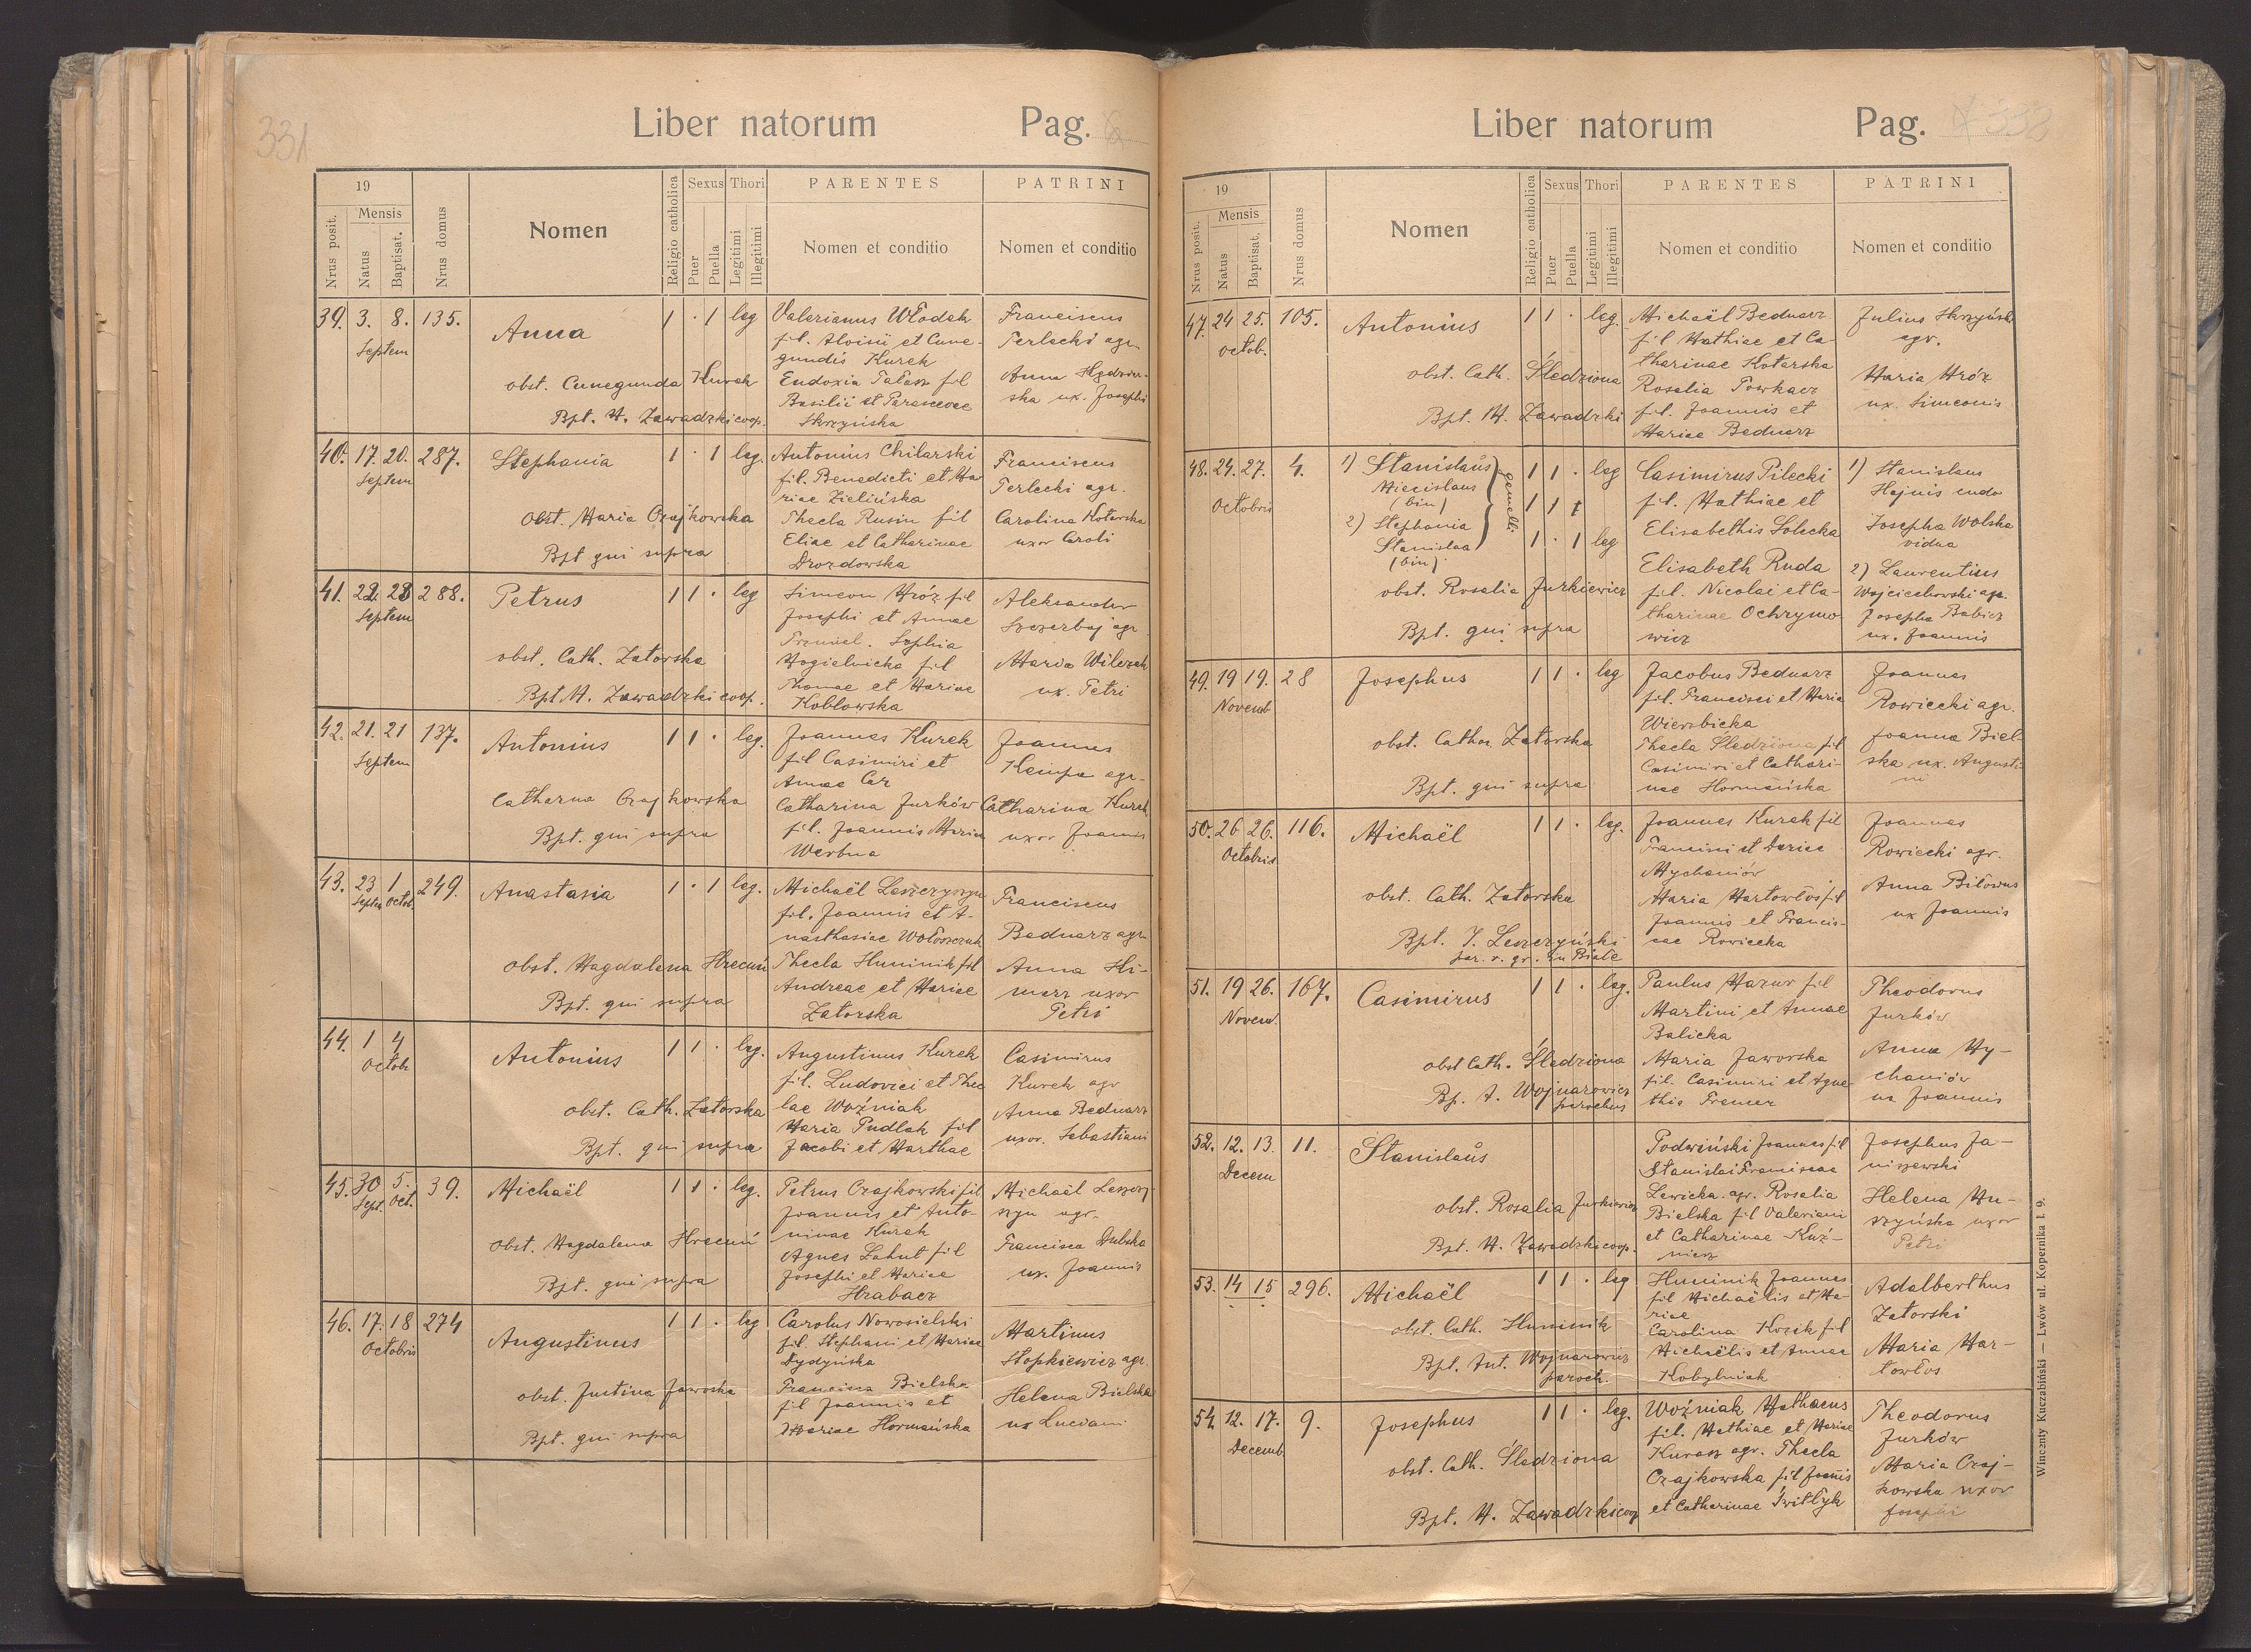 331
Liber natorum Pag.
19
Mensis
Nrus posit.
Natus
Baptisat.
Nrus domus
Nomen
Religio catholica
Sexus
Puer
Puella
Thori
Legitimi
Illegitimi
PARENTES
Nomen et conditio
PATRINI
Nomen et conditio
39. 3. 8. 135. Anna 1 · 1 leg
Septem
obst. Cunegunda Kurek
Bpt. M. Zawadzki coop.
Valerianus Włodek
fil. Aloisii et Cune-
gundis Kurek
Eudoxia Tałasz fil
Basilii et Parascevae
Skrzyńska
Franciscus
Terlecki agr.
Anna
ska ux. Josephi
40. 17. 20. 287. Stephania 1 · 1 leg.
Septem
Obst. Maria Czajkowska
Bpt qui supra
Antonius Chilarski
fil. Benedicti et Ma
riae Zielińska
Thecla Rusin fil
Eliae et Catharinae
Drozdowska
Franciscus
Terlecki agr.
Carolina Kotarska
uxor Caroli
41. 22. 23 288. Petrus 1 1 · leg
Septem
obst. Cath. Zatorska
Bpt M. Zawadzki coop.
Simeon Mróz fil
Josephi et Annae
Fremiel. Sophia
Mogielnicka fil
Thomae et Mariae
Kobłowska
Aleksander
Szczerbaj agr
Maria Wilczek
ux. Petri
42. 21. 21 137. Antonius 1 1 · leg.
Septem
Catharna Czajkowska
Bpt. qui supra
Joannes Kurek
fil Casimiri et
Annae Car
Catharina Jurków
fil. Joannis Mariae
Werbna
Joannes
Kempa agr.
Catharina Kurek
uxor Joannis
43. 23 1 249. Anastasia 1 · 1 leg.
Septem Octob.
Obst. Magdalena Hrecuń
Bpt. qui supra
Michaël Leszczyszyn
fil. Joannis et A-
nasthasiae Wołoszczuk
Thecla Huminik fil
Andreae et Mariae
Zatorska
Franciscus
Bednarz agr
Anna Kli-
marz uxor
Petri
44. 1 4 Antonius 1 1 · leg.
Octob
Obst. Cath. Zatorska
Bpt. qui supra
Augustinus Kurek
fil. Ludovici et Thec
lae Woźniak
Maria Pudlak fil
Jacobi et Marthae
Casimirus
Kurek agr
Anna Bednarz
uxor. Sebastiani
45. 30 5. 39. Michaël 1 1 · leg.
Sept. Oct.
Obst. Magdalena Hrecuń
Bpt. qui supra
Petrus Czajkowski fil
Joannis et Anto-
ninae Kurek
Agnes Łahut fil
Josephi et Mariae
Hrabacz
Michaël Leszczy-
szyn agr.
Francisca Dubska
ux. Joannis
46. 17. 18 274 Augustinus 1 1 · leg
Octobris
obst. Justina Jaworska
Bpt. qui supra
Carolus Nowosielski
fil. Stephani et Mariae
Dydyńska
Francisca Bielska
fil Joannis et
Mariae Hormańska
Martinus
Stopkiewicz agr.
Helena Bielska
ux Luciani
332
Liber natorum Pag.
19
Mensis
Nrus posit.
Natus
Baptisat.
Nrus domus
Nomen
Religio catholica
Sexus
Puer
Puella
Thori
Legitimi
Illegitimi
PARENTES
Nomen et conditio
PATRINI
Nomen et conditio
47. 24 25. 105. Antonius 1 1 · leg.
Octob.
obst. Cath. Śledziona
Bpt. M. Zawadzki
Michaël Bednarz
fil Mathiae et Ca-
tharinae Kotarska
Rosalia Powkacz
fil. Joannis et
Mariae Bednarz
Julius Skrzyński
agr.
Maria Mróz
ux. Simeonis
48. 24. 27. 4. 1) Stanislaus 1 1 · leg
Octobris
Miecislaus
(bin)
2) Stephania
Stanislaa
(bin)
gemelli
1 · 1 leg
obst. Rosalia Jurkiewicz
Bpt. qui supra
Casimirus Pilecki
fil. Mathiae et
Elisabethis Solecka
Elisabeth Ruda
fil. Nicolai et Ca-
tharinae Ochrymo
wicz
1) Stanislaus
Josepha Wolska
vidua
2) Laurentius
Wojciechowski agr.
Josepha Babicz
ux. Joannis
49. 19 19. 28 Josephus 1 1 · leg
Novemb
obst. Cathar. Zatorska
Bpt. qui supra
Jacobus Bednarz
fil. Francisci et Maria
Wierzbicka
Thecla Śledziona fil
Casimiri et Cathari-
nae Hormańska
Joannes
Rowiecki agr.
Joanna Biel-
ska ux. Augusti-
ni
50. 26 26. 116. Michaël 1 1 · leg.
Octobris
obst. Cath. Zatorska
Bpt. J. Leszczyński
par. r. gr. in Białe
Joannes Kurek fil
Francisci et Dariae
Mychaniów
Maria Martowłos fil
Joannis et Francis-
cae Rowiecka
Joannes
Rowiecki agr.
Anna Biłowus
ux Joannis
51. 19 26. 167. Casimirus 1 1 · leg.
Novem.
obst Cath. Śledziona
Bp. A. Wojnarowicz
parochus
Paulus Mazur fil
Martini et Annae
Balicka
Maria Jaworska
fil. Casimiri et Agne-
this Fremer
Theodorus
Jurków
Anna My-
chaniów
ux Joannis
52. 12. 13. 11. Stanislaus
Decem
obst. Rosalia Jurkiewicz
Bpt. M. Zawadzki coop.
Podwiński Joannes fil
Stanislai Franciscae
Lewicka. agr. Rosalia
Bielska fil Valeriani
et Catharinae Kuź-
niarz
Josephus Ja-
niszewski
Helena Mu-
szyńska uxor
Petri
53. 14 15 296. Michaël 1 1 · leg
obst. Cath. Huminik
Bpt. Ant. Wojnarowicz
paroch.
Huminik Joannes
fil Michaëlis et Ma-
riae
Carolina Kozik fil
Michaëlis et Annae
Kobylniak
Adalberthus
Zatorski
Maria Mar-
towłos
54 12. 17. 9. Josephus 1 1 · leg.
Decemb.
obst. Cath. Śledziona
Bpt. M. Zawadzki coop
Woźniak Mathaeus
fil. Mathiae et Mariae
Kurasz agr. Thecla
Czajkowska fil Joannis
et Catharinae Świtłyk
Theodorus
Jurków
Maria Czaj-
kowska uxor
Josephi
Winczenty Kuczabiński — Lwów ul. Kopernika l. 9.